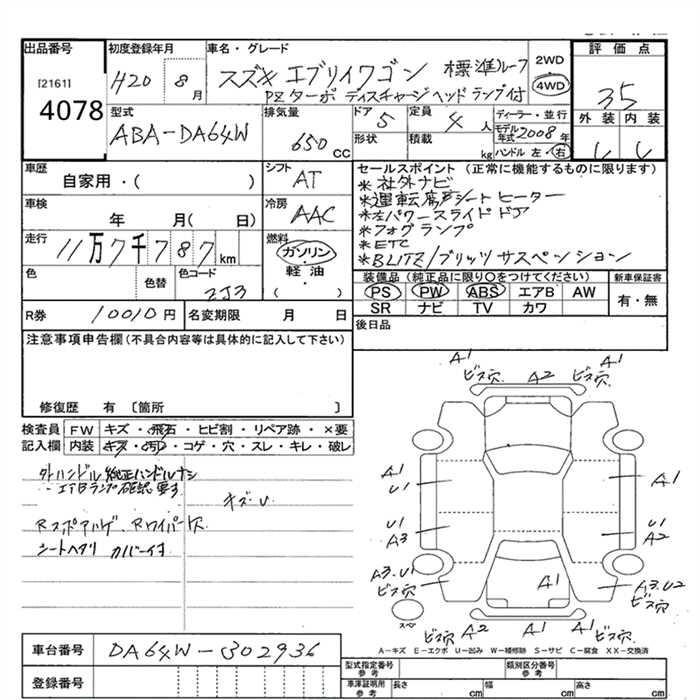 出品番号
[2161]
4078
初度登録年月
H20 8月
車名・グレード
スズキ エブリイワゴン 標準ルーフ
PZターボ ディスチャージヘッドランプ付
2WD
4WD
評価点
3.5
外装 内装
型式
ABA-DA64W
排気量
650 CC
ドア
5
定員
4人
形状
積載
kg
ディーラー・並行
モデル年式 2008年
ハンドル 左・右
車歴
自家用・( )
シフト
AT
車検
年 月( 日)
冷房
AAC
走行
11万7千787km
燃料
ガソリン・
軽油・
( )
色
色替
色コード
ZJ3
セールスポイント (正常に機能するものに限ります)
*社外ナビ
*運転席シートヒーター
*左パワースライドドア
*フォグランプ
*ETC
*BLITZ/ブリッツサスペンション
装備品 (純正品に限り○をつけてください)
PS PW ABS エアB AW
SR ナビ TV カワ
新車保証書
有・無
R券
10010円
名変期限
月 日
後日品
注意事項申告欄(不具合内容等は具体的に記入して下さい)
修復歴 有 [箇所 ]
検査員記入欄
FW キズ・飛石・ヒビ割・リペア跡・×要
内装 キズ・汚レ・コゲ・穴・スレ・キレ・破レ
外ハンドル 純正ハンドルナシ
エアBランプ確認要す
キズ・U
Rスポアルゲ、Rワイパー欠
シートヘタリ カバー付
A1
ビス穴
A2
A1
ビス穴
A1
U1
A1
U1
A3
U1
A2
A3.U1
ビス穴
A1
A3.U2
ビス穴
スペア
ビス穴
A2
A1
ビス穴
A-キズ E-エクボ U-凹み W-補修跡 S-サビ C-腐食 XX-交換済
車台番号
DA64W-302936
登録番号
型式指定番号 参考
類別区分番号 参考
車庫証明用 参考
長さ cm
幅 cm
高さ cm